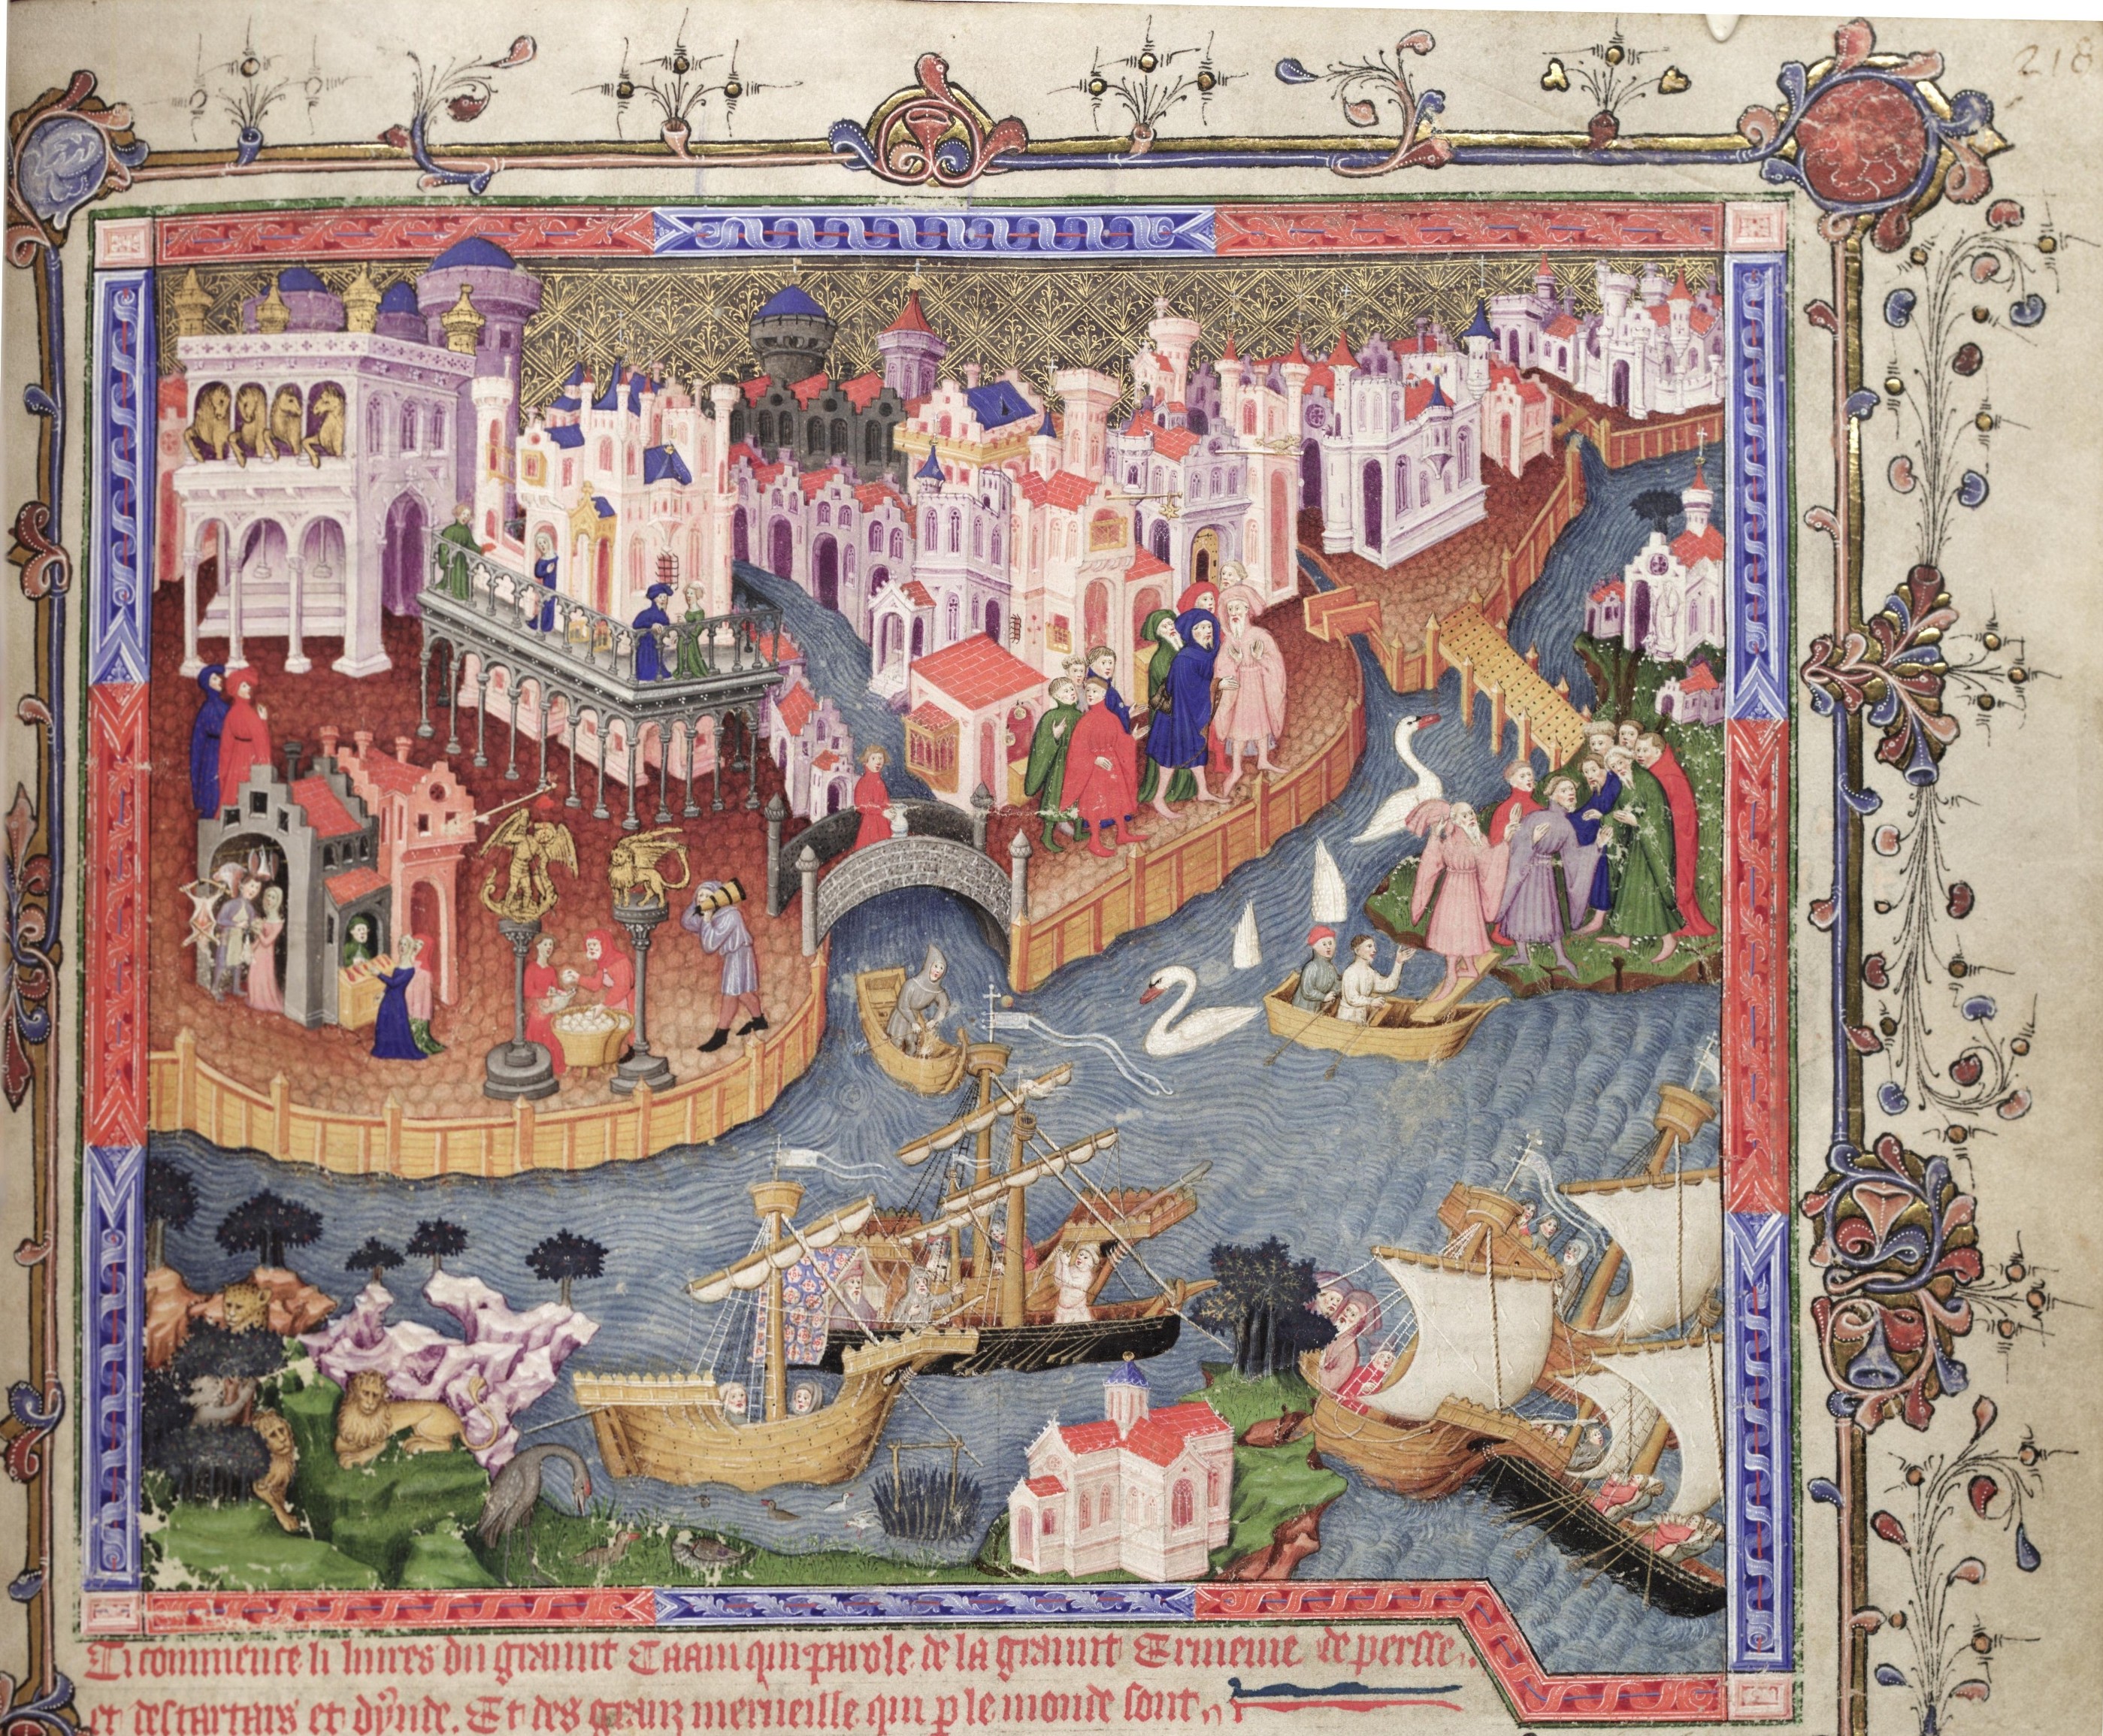 218
Ci commence li liures du graunt Caam qui parole de la graunt Ermenie de persse
et des tartars et dynde. Et des granz merueille qui p le monde sont